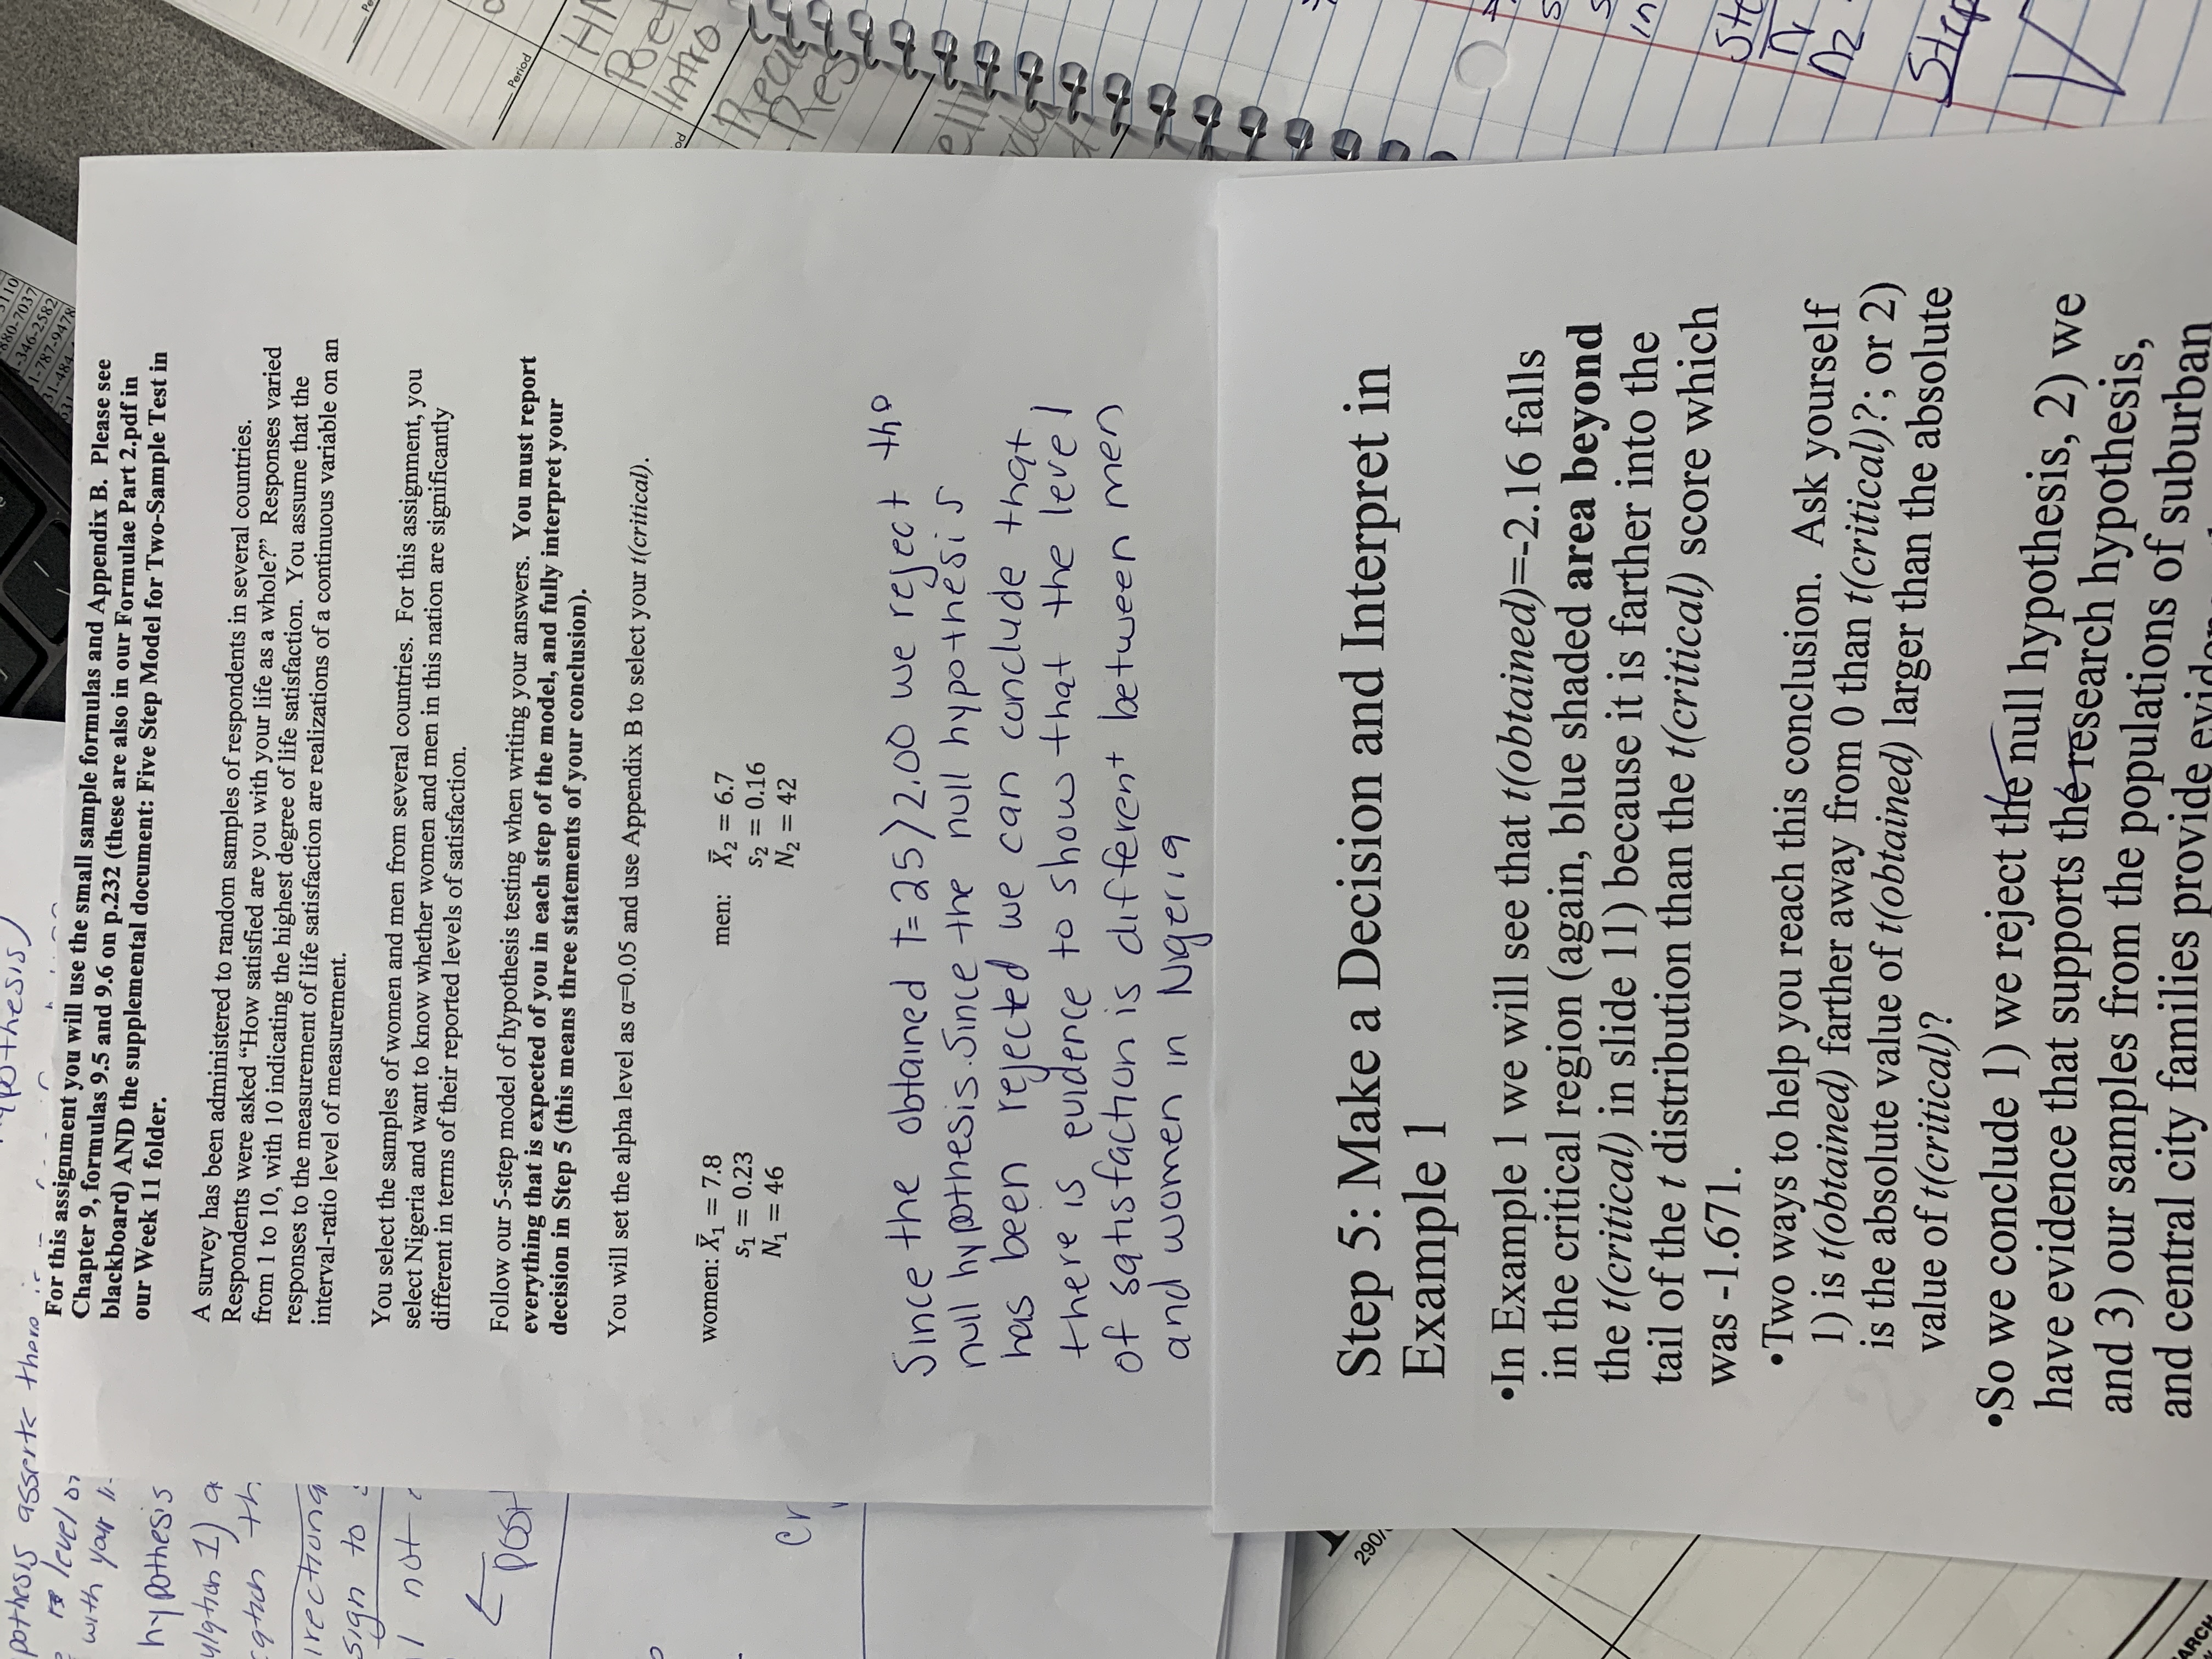 For this assignment you will use the small sample formulas and Appendix B. Please see
Chapter 9, formulas 9.5 and 9.6 on p.232 (these are also in our Formulae Part 2.pdf in
blackboard) AND the supplemental document: Five Step Model for Two-Sample Test in
our Week 11 folder.
A survey has been administered to random samples of respondents in several countries.
Respondents were asked “How satisfied are you with your life as a whole?” Responses varied
from 1 to 10, with 10 indicating the highest degree of life satisfaction. You assume that the
responses to the measurement of life satisfaction are realizations of a continuous variable on an
interval-ratio level of measurement.
You select the samples of women and men from several countries. For this assignment, you
select Nigeria and want to know whether women and men in this nation are significantly
different in terms of their reported levels of satisfaction.
Follow our 5-step model of hypothesis testing when writing your answers. You must report
everything that is expected of you in each step of the model, and fully interpret your
decision in Step 5 (this means three statements of your conclusion).
You will set the alpha level as α=0.05 and use Appendix B to select your t(critical).
women: X̄₁ = 7.8 men: X̄₂ = 6.7
s₁ = 0.23 s₂ = 0.16
N₁ = 46 N₂ = 42
Since the obtained t=25>2.00 we reject the
null hypothesis. Since the null hypothesis
has been rejected we can conclude that
there is evidence to show that the level
of satisfaction is different between men
and women in Nigeria
Step 5: Make a Decision and Interpret in
Example 1
•In Example 1 we will see that t(obtained)=-2.16 falls
in the critical region (again, blue shaded area beyond
the t(critical) in slide 11) because it is farther into the
tail of the t distribution than the t(critical) score which
was -1.671.
•Two ways to help you reach this conclusion. Ask yourself
1) is t(obtained) farther away from 0 than t(critical)?; or 2)
is the absolute value of t(obtained) larger than the absolute
value of t(critical)?
•So we conclude 1) we reject the null hypothesis, 2) we
have evidence that supports the research hypothesis,
and 3) our samples from the populations of suburban
and central city families provide
pothesis asserts there
level of
with your
hypothesis
sign to
not
post
cr
Period
Poet
Intro
Read
Res
Step
N
n2
290
880-7037
346-2582
787-9478